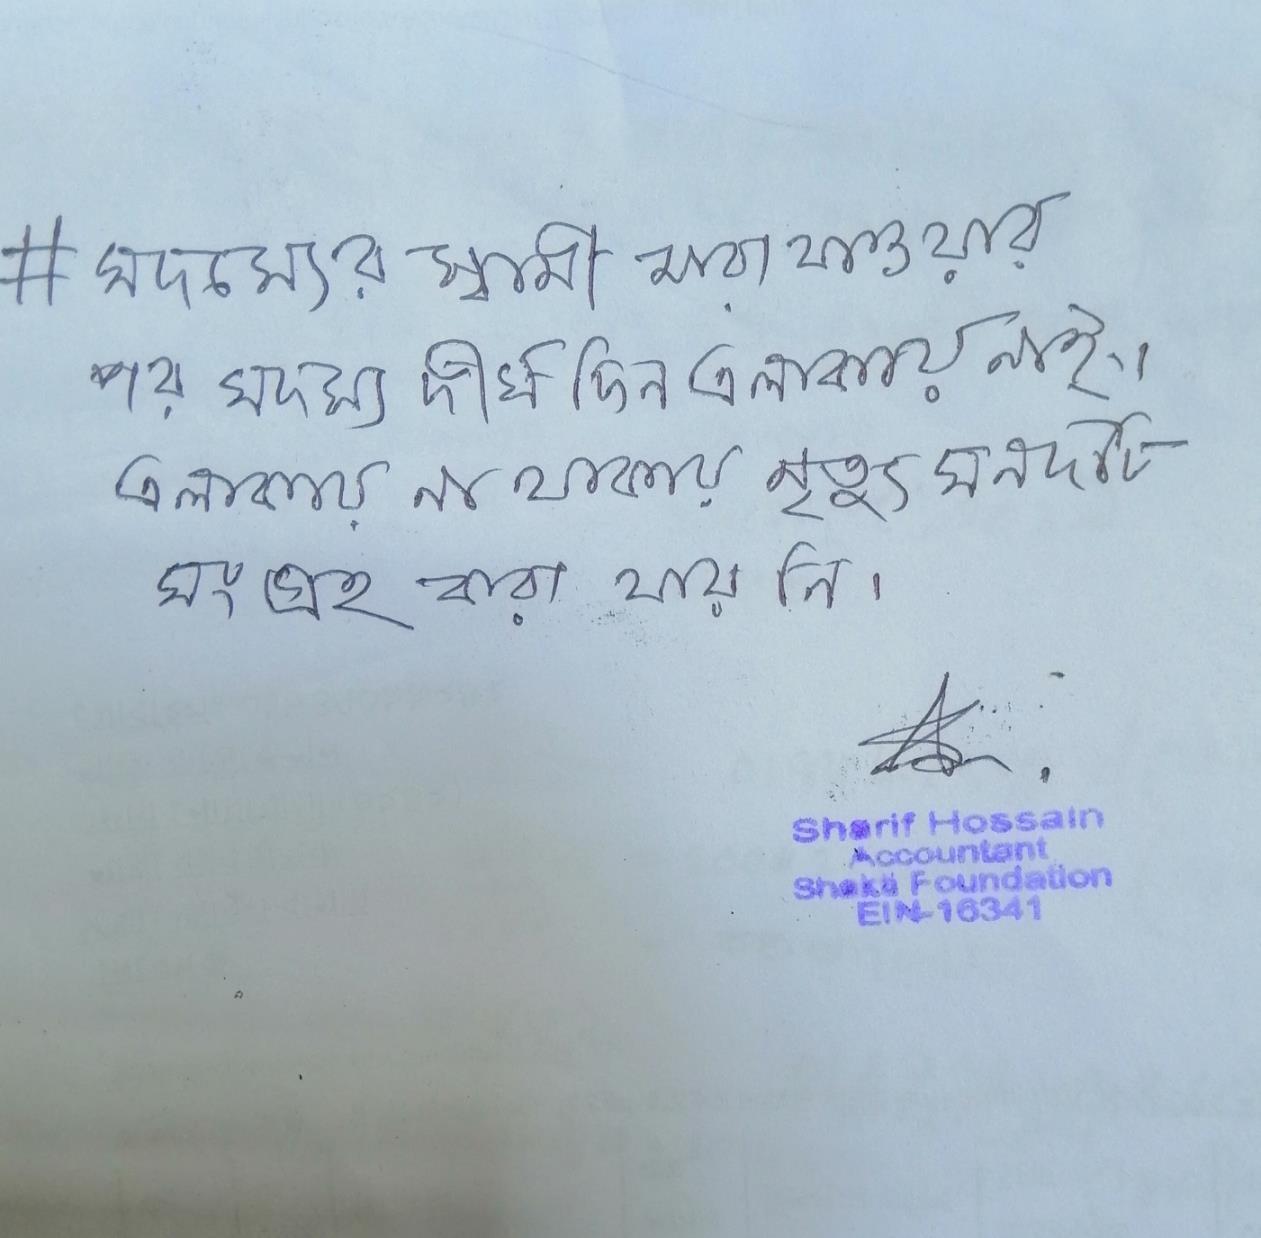 # সদস্যের স্বামী মারা যাওয়ার
পর সদস্য দীর্ঘ দিন এলাকায় নাই।
এলাকায় না থাকায় মৃত্যু সনদটি
সংগ্রহ করা যায় নি।
Sharif Hossain
Accountant
Shakti Foundation
EIN-16341